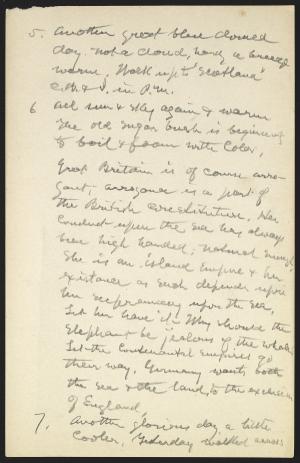 5. Another great blue domed
day. not a cloud, hardly a breeze
warm. Walk up to "Scotland"
C.B. & J. in P.m.
6 All sun & sky again, & warm
The old sugar bush is beginning
to boil & foam with color.
Great Britain is of course arro-
gant, arrogance is a part of
the British constitution. Her
conduct upon the sea has always
been high handed; natural enough,
She is an island Empire & her
existance as such depends upon
her supremacy upon the sea.
Let her have it. Why should the
Elephant be jealous of the whale.
Let the Continental Empires go
their way. Germany wants both
the sea & the land, to the exclusion
of England.
7. Another glorious day, a little
cooler, Yesterday walked across